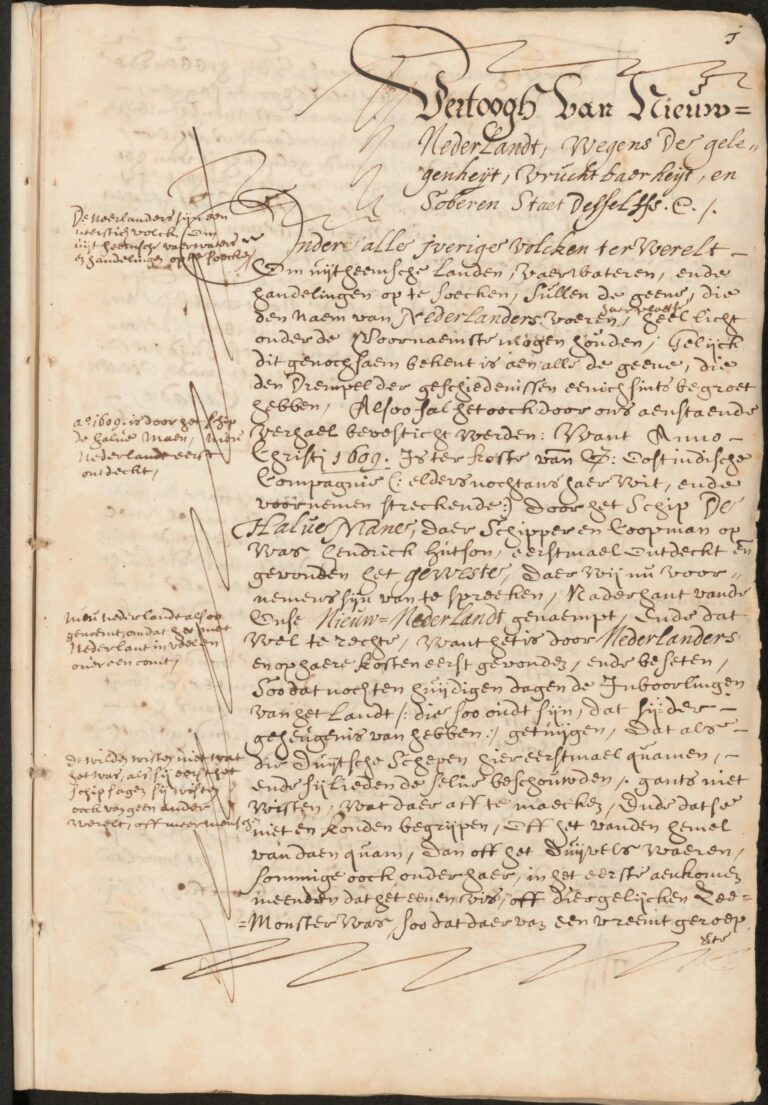 1
Vertoogh Van Nieuw=
Nederlandt, Wegens De gele„
genheyt, Vruchtbaerheyt, en
Soberen Staet Desselffs. &. /.
De Neerlanders sijn een
volck / Om
uijtheemsche vaerwateren
en handelingen op te soecken
Ondere alle ijverige Volcken ter Werelt –
Om uijtheemsche Landen, Vaerwateren, ende
handelingen op te soecken, sullen de geene, die
den Naem van Nederlanders voeren, heel licht
onder de Voornaemste mogen houden, Gelijck
dit genochsaem bekent is aen alle de geene, die
den Drempel der geschiedenissen eenichsints begroet
hebben, Alsoo sal het oock door ons aenstaende
Verhael bevesticht werden: Want Anno –
Christj 1609. Is ter koste van E: Oostindische
Compagnie (: elders nochtans haer Wit, ende
voornemen streckende:) door het Schip De
Halve Mane, daer Schipper en Coopman op
Was Hendrick Hutson, eerstmael Ontdeckt en
gevonden het geweste, daer Wij nu voor„
nemens sijn van te spreecken, Naderhant vande
Onse Nieuw=Nederlandt genaempt, Ende dat
Wel te rechte, Want het is door Nederlanders
en op haere kosten eerst gevonden, ende beseten,
Soo dat noch ten huijdigen dagen de Inboorlingen
van het Landt /: die soo oudt sijn, dat sij der –
geheugenis van hebben:/ getuijgen, Dat als –
die Duijtsche Schepen hier eerstmael quamen, –
ende sijlieden de selve beschouwden /. gants niet
Wisten, Wat daer aff te maecken, Ende dat se
niet en konden begrijpen, Off het vanden hemel
van daen quam, dan off het Duijvels Waeren,
Sommige oock onder haer, in het eerste aenkomen
meenden dat het een vis, off diergelijcken Zee=
=Monster Was, soo dat daer van een vreemt geroep
a° 1609. is door het schip
de halve Maen, Nieu
Nederlandt eerst
ontdeckt,
Nieu Nederlandt alsoo
genoemt, omdat het met
Nederlant in veelen
overeen comt,
de wilden wisten niet wat
het was, als sij eerst het
schip sagen, sij wisten
oock van geen ander
werelt, off meer mensch